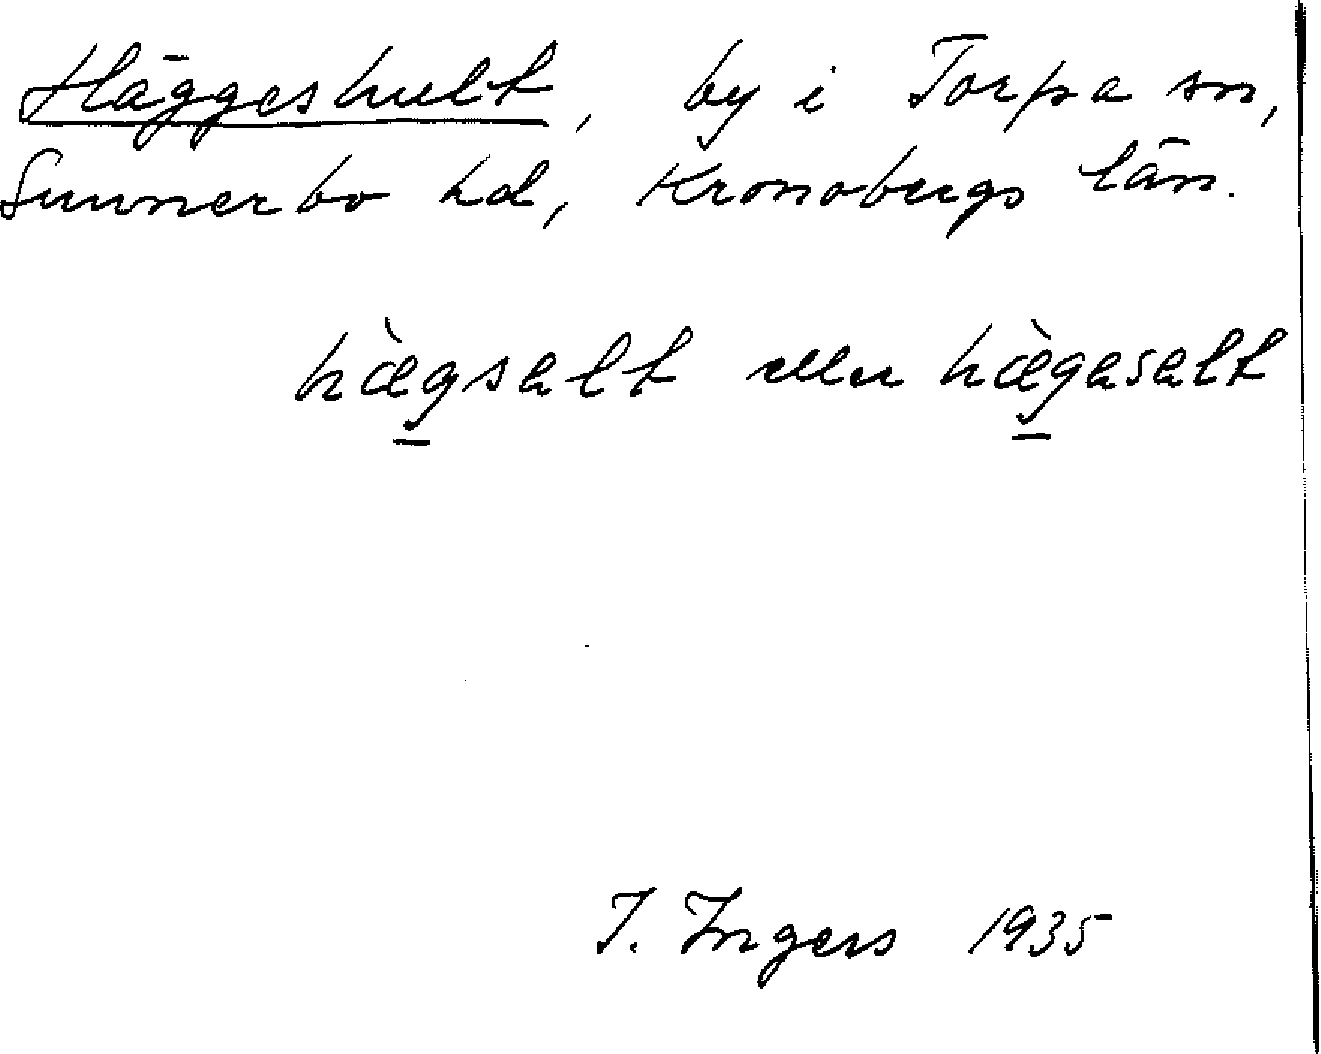 Häggeshult, by i Torpa sn,
Sunnerbo hd, Kronobergs län.
hæ̀gsalt eller hæ̀gasalt
I. Ingers 1935